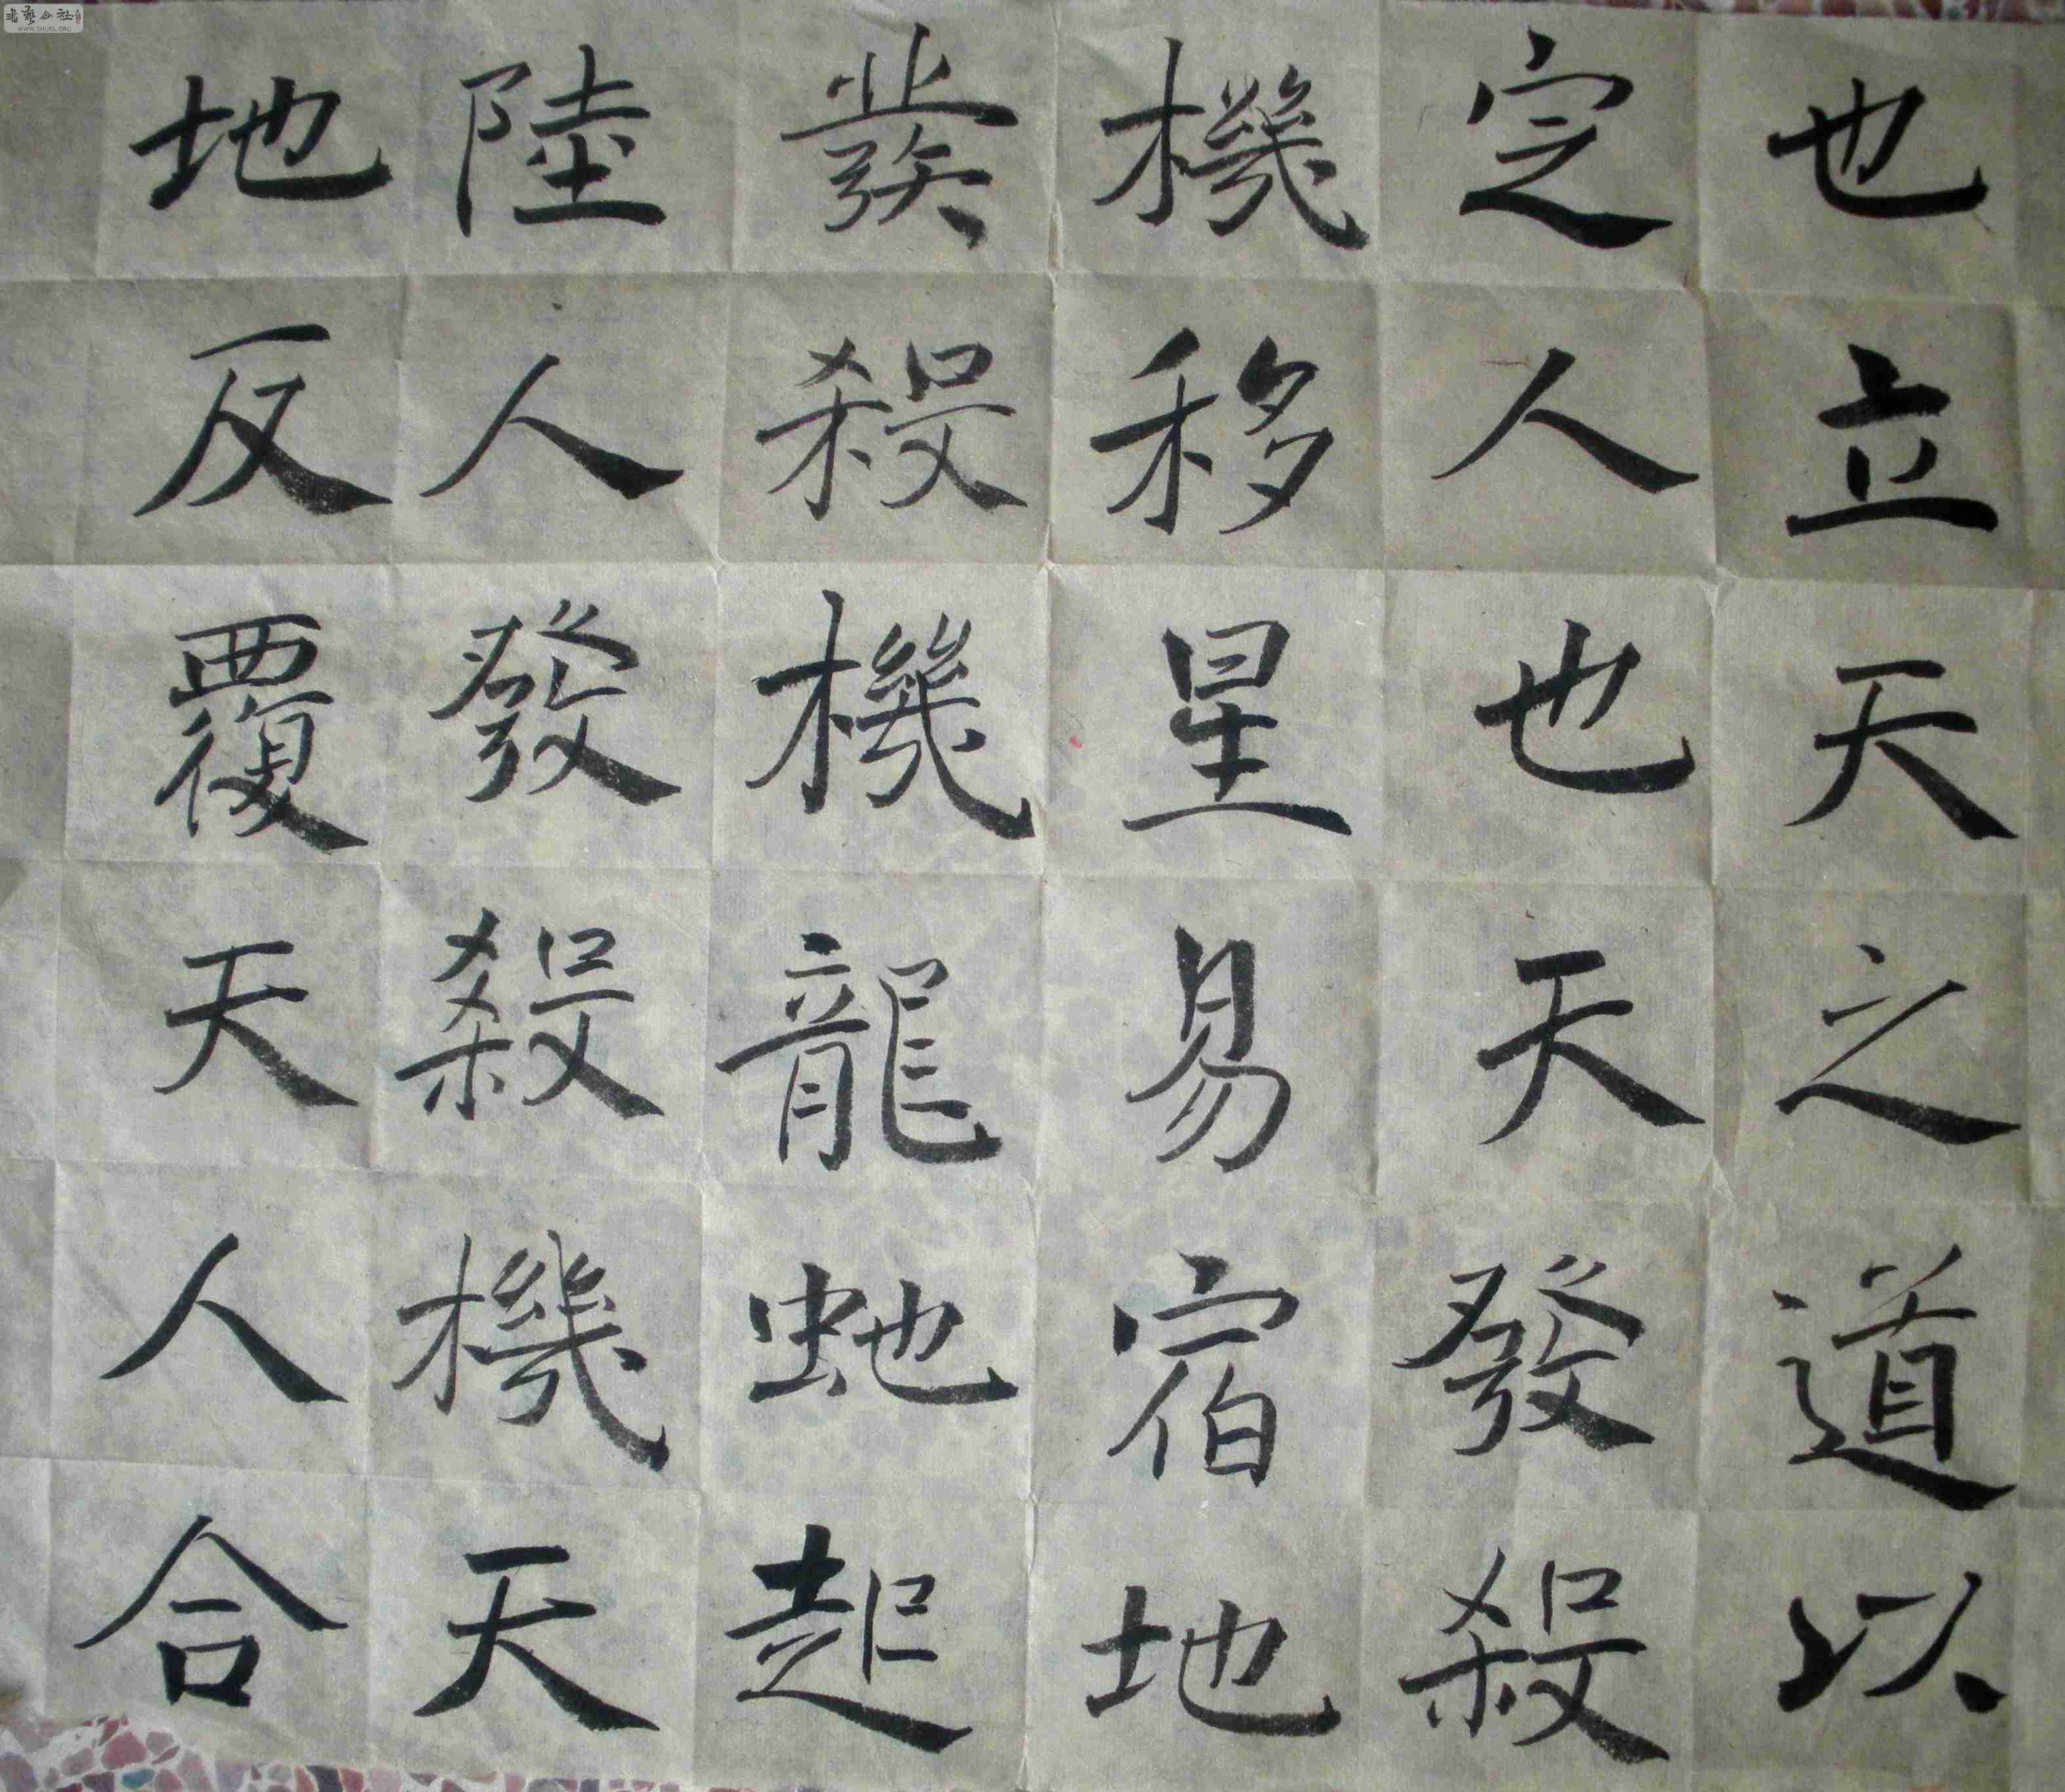 也立天之道以
定人也天發殺
機移星易宿地
發殺機龍虵起
陸人發殺機天
地反覆天人合
WWW.SHUFA.ORG